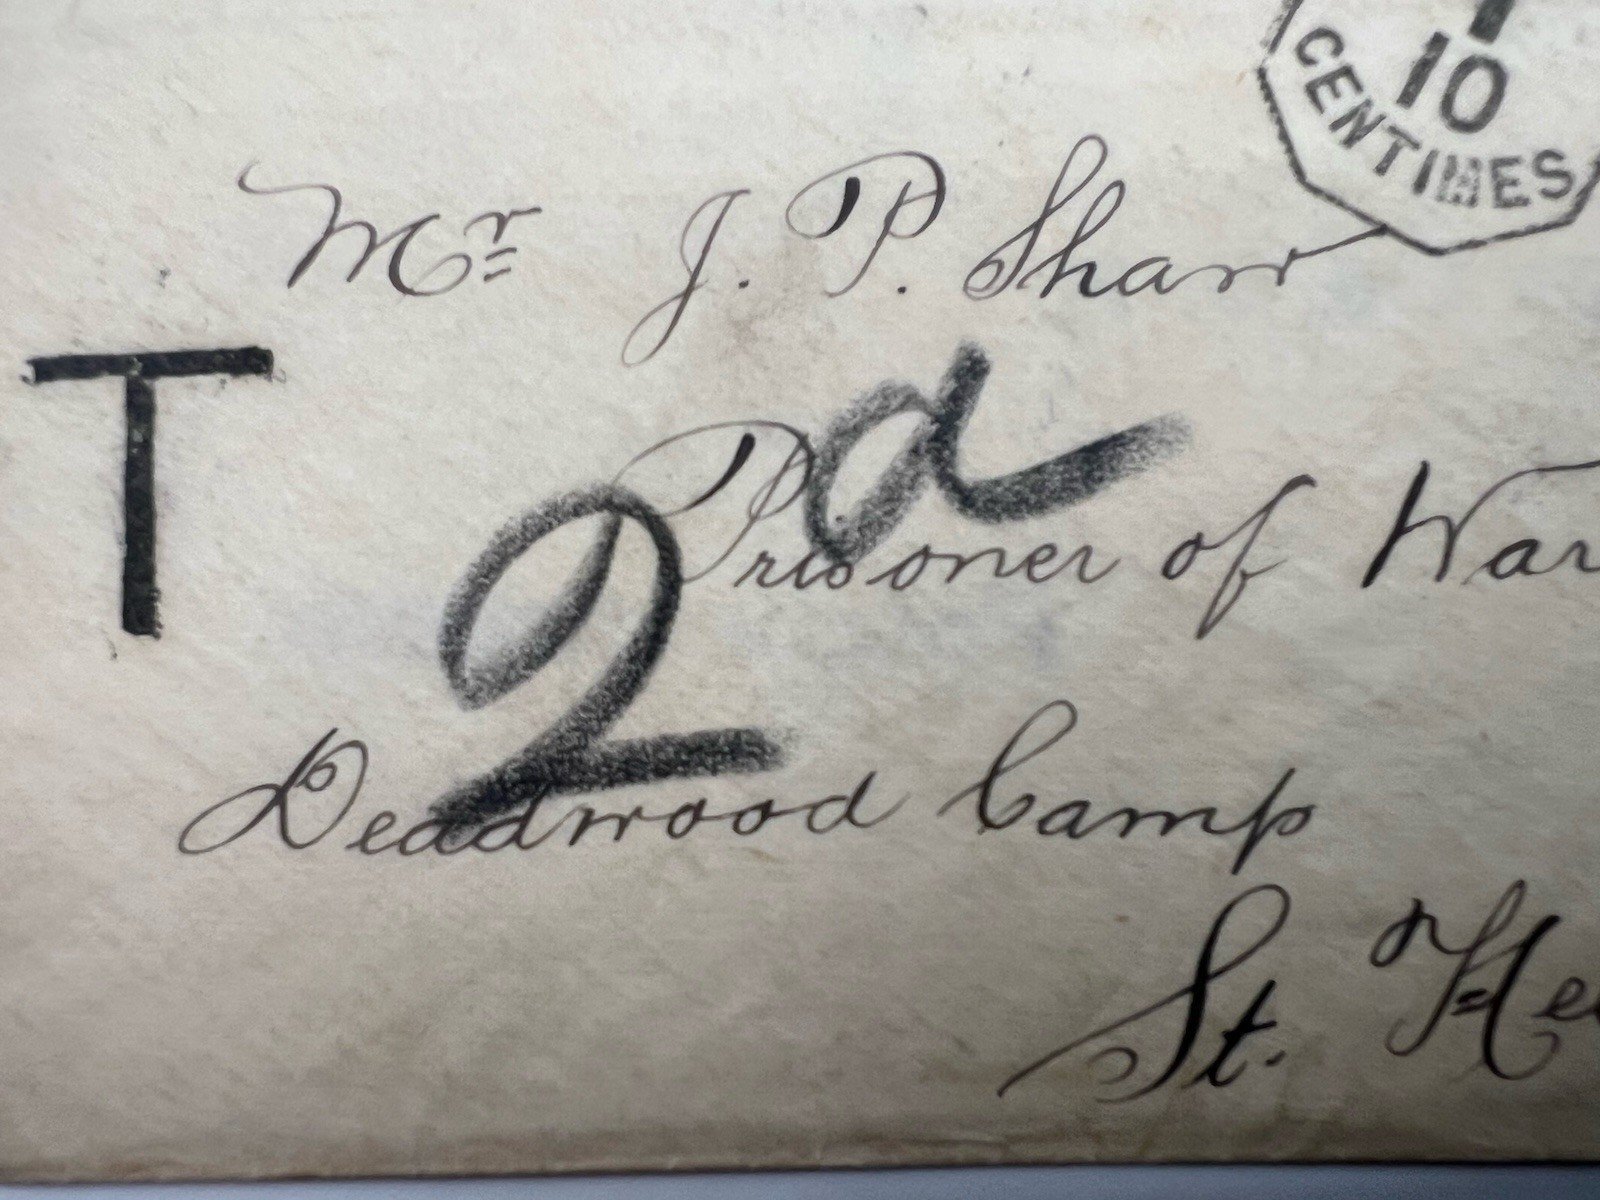 10
CENTIMES
Mr J. P. Shaw
T
2d
Prisoner of War
Deadwood Camp
St. He